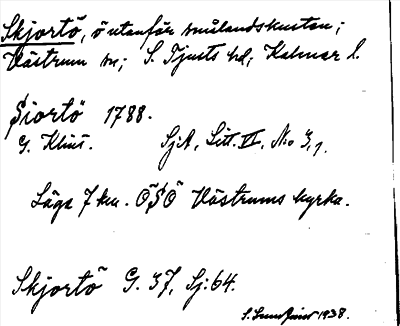 Skjortö, ö utanför smålandskusten;
Västrum sn; S. Tjusts hd; Kalmar l.
Siortö 1788.
G. Klint. SjA, Litt. VI, No 3,1.
Läge 7 km. ÖSÖ Västrums kyrka.
Skjortö G. 37, Sj:64.
1938.